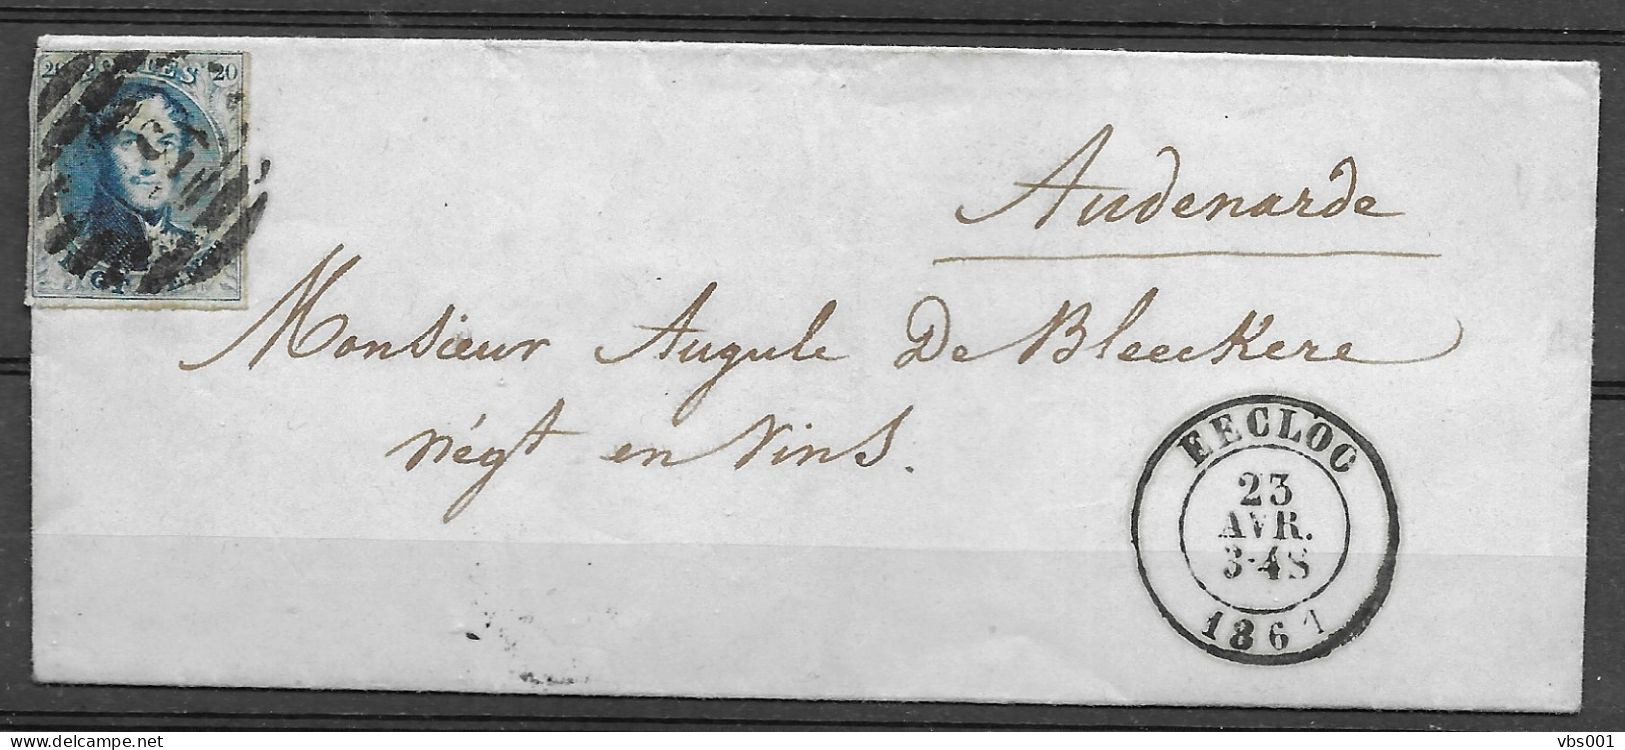 20 POSTES 20
VINGT CENTS
Audenarde
Monsieur Augule De Bleeckere
négt en Vins.
EECLOO
23
AVR.
3-4S
1861
delcampe.net
vbs001